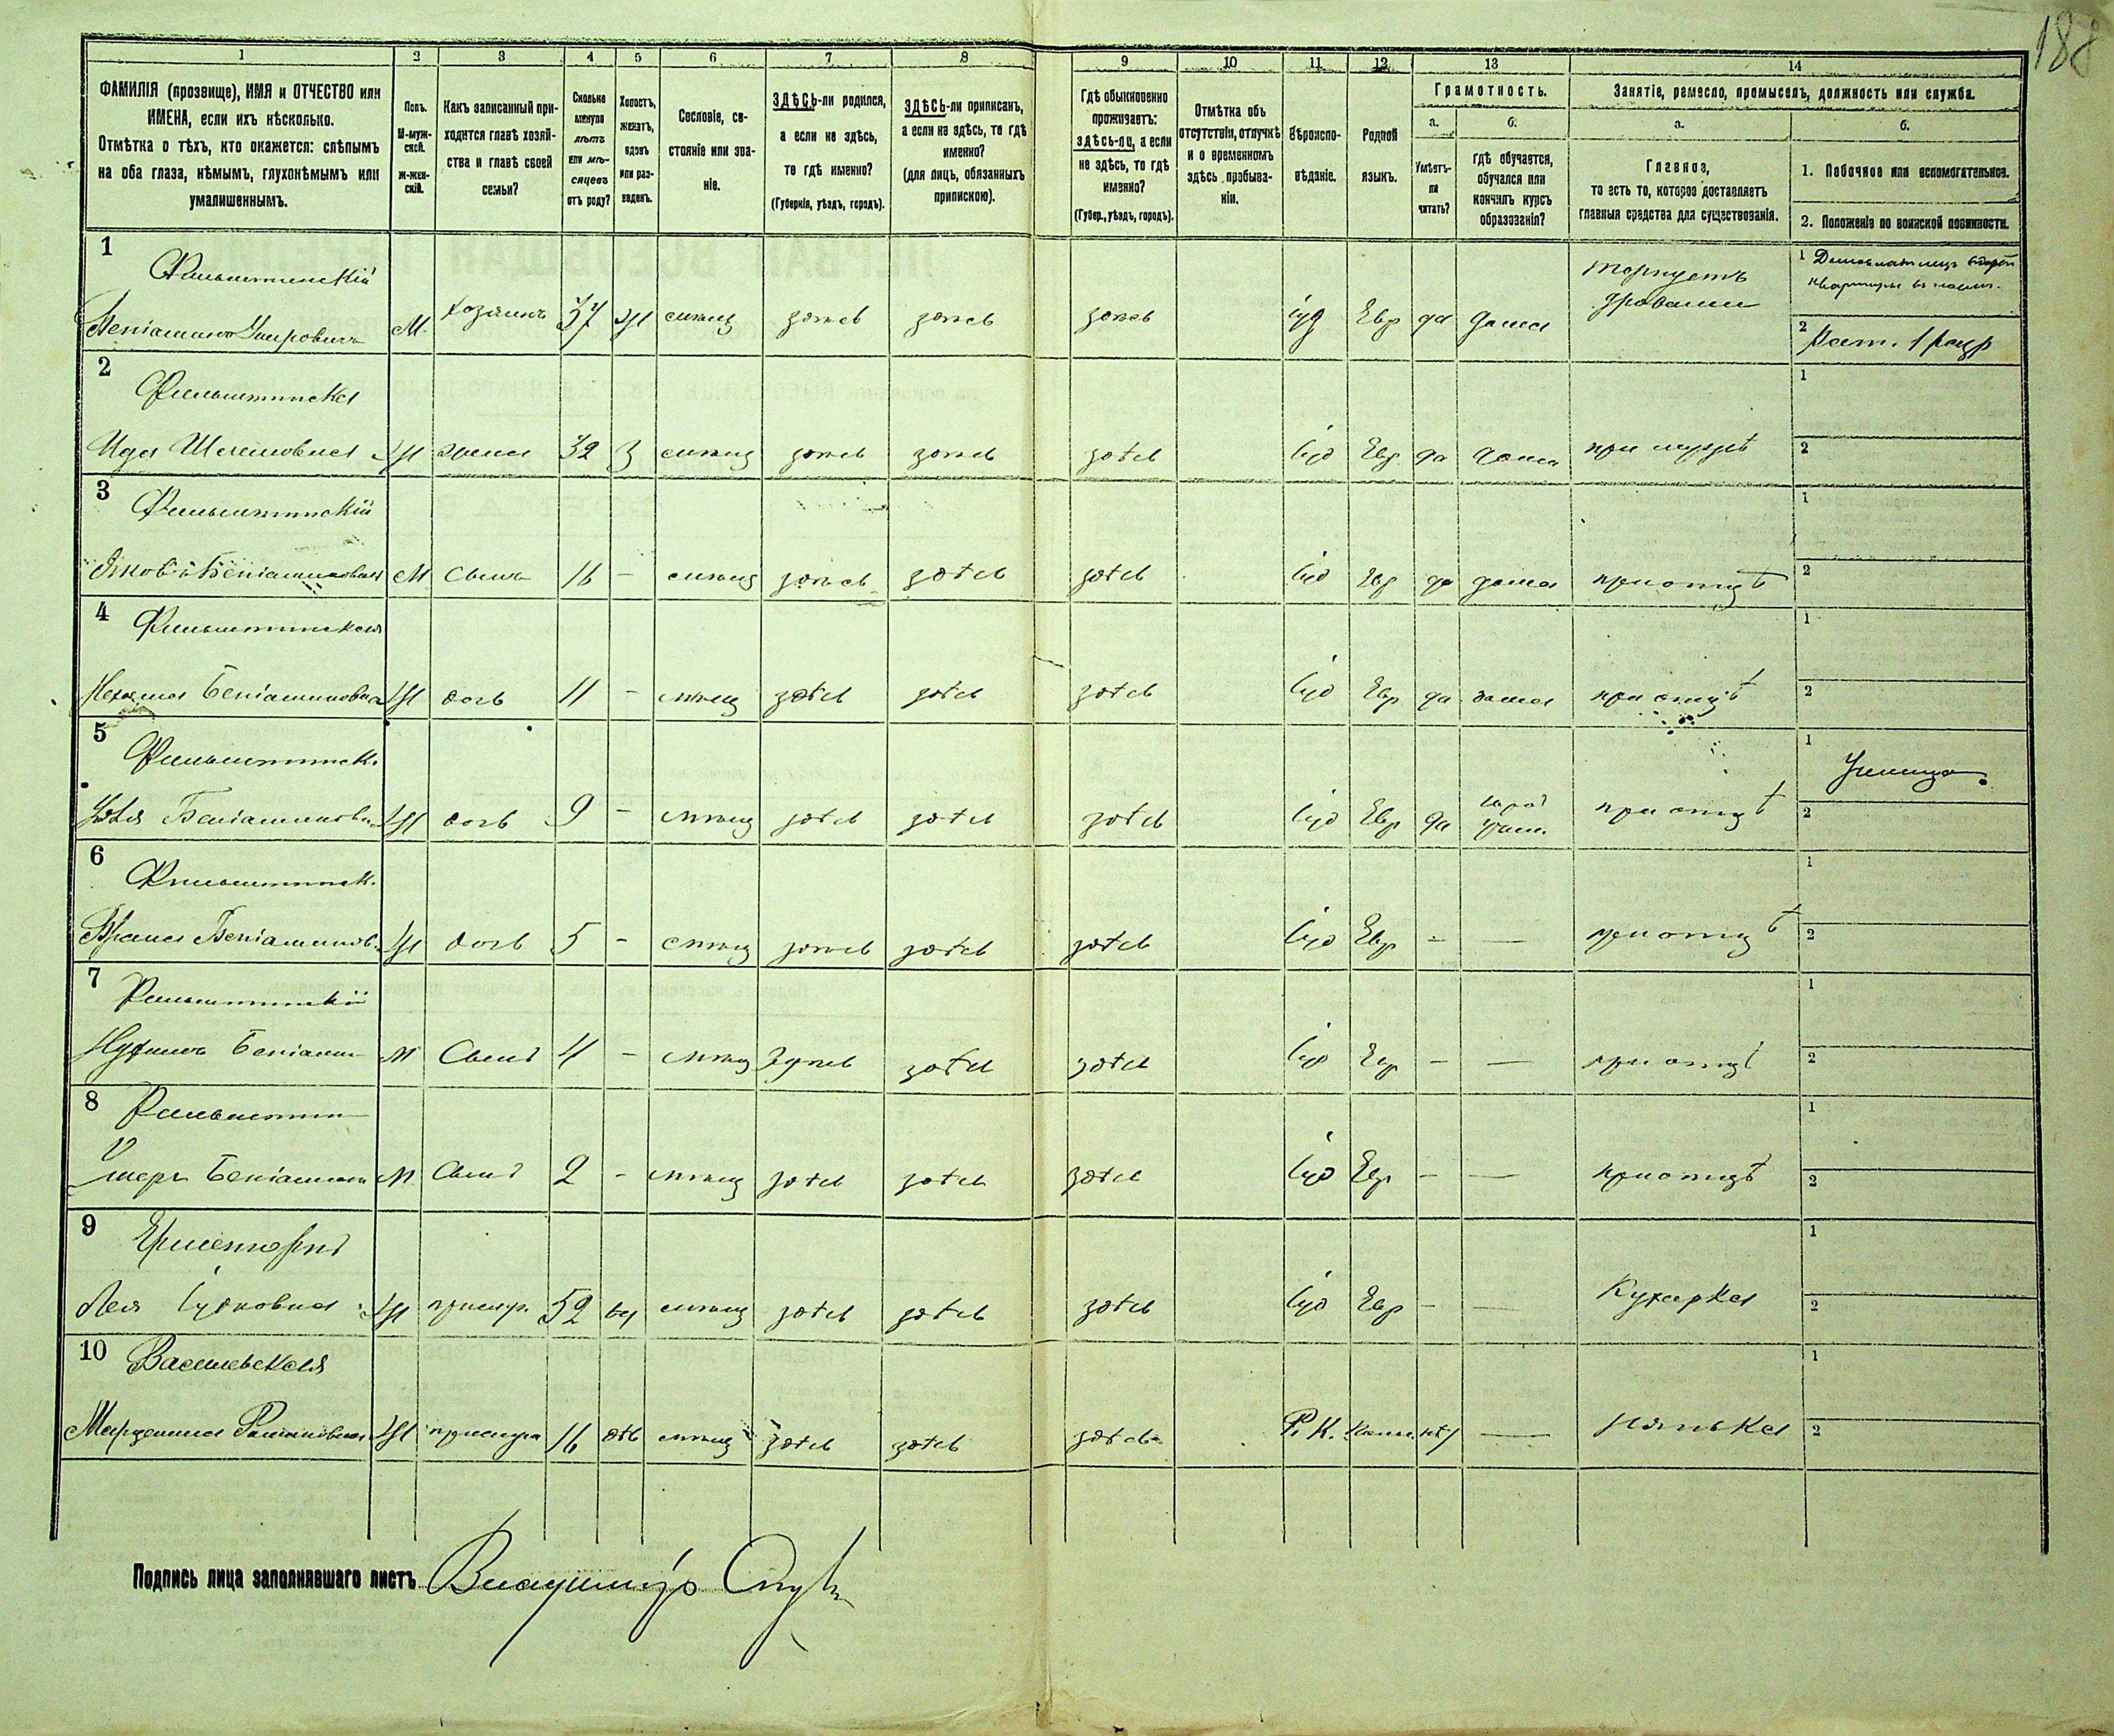 188
1 2 3 4 5 6 7 8 9 10 11 12 13 14
ФАМИЛІЯ (прозвище), ИМЯ и ОТЧЕСТВО или
ИМЕНА, если ихъ нѣсколько.
Отмѣтка о тѣхъ, кто окажется: слѣпымъ
на оба глаза, нѣмымъ, глухонѣмымъ или
умалишеннымъ.
Полъ.
М-муж-
ской.
Ж-жен-
скій.
Какъ записанный при-
ходится главѣ хозяй-
ства и главѣ своей
семьи?
Сколько
минуло
лѣтъ
или мѣ-
сяцевъ
отъ роду?
Холостъ,
женатъ,
вдовъ
или раз-
веденъ.
Сословіе, со-
стояніе или зва-
ніе.
ЗДѢСЬ-ли родился,
а если не здѣсь,
то гдѣ именно?
(Губернія, уѣздъ, городъ).
ЗДѢСЬ-ли приписанъ,
а если не здѣсь, то гдѣ
именно?
(для лицъ, обязанныхъ
припискою).
Гдѣ обыкновенно
проживаетъ:
здѣсь-ли, а если
не здѣсь, то гдѣ
именно?
(Губер., уѣздъ, городъ).
Отмѣтка объ
отсутствіи, отлучкѣ
и о временномъ
здѣсь пребыва-
ніи.
Вѣроиспо-
вѣданіе.
Родной
языкъ.
Грамотность.
а. б.
Умѣетъ-
ли
читать?
гдѣ обучается,
обучался или
кончилъ курсъ
образованія?
Занятіе, ремесло, промыселъ, должность или служба.
а. б.
Главное,
то есть то, которое доставляетъ
главныя средства для существованія.
1. Побочное или вспомогательное.
2. Положеніе по воинской повинности.
1 Фильштинскій
Беніаминъ М. хозяинъ 37 Ж мѣщ здѣсь здѣсь здѣсь іуд Евр да дома торгуетъ дровами
1 Домовладѣлецъ
2 1 разр
2 Фильштинска
Ида Ж жена 32 З мѣщ здѣсь здѣсь здѣсь іуд Евр да дома при мужѣ 1 2
3 Фильштинскій
М сынъ 16 - мѣщ здѣсь здѣсь здѣсь іуд Евр да дома при отцѣ 1 2
4 Фильштинская
Беніаминовна Ж дочь 11 - мѣщ здѣсь здѣсь здѣсь іуд Евр да дома при отцѣ 1 2
5 Фильштинск.
Беніаминовн Ж дочь 9 - мѣщ здѣсь здѣсь здѣсь іуд Евр да при отцѣ
1 Ученица 2
6 Фильштинск.
Беніаминов. Ж дочь 5 - мѣщ здѣсь здѣсь здѣсь іуд Евр - — при отцѣ 1 2
7 Фильштинскій
Беніамин М Сынъ 4 - мѣщ здѣсь здѣсь здѣсь іуд Евр - — при отцѣ 1 2
8 Фильштин
Умеръ Беніамин М Сынъ 2 - мѣщ здѣсь здѣсь здѣсь іуд Евр - — при отцѣ 1 2
9
Лея Ж прислуг. 52 мѣщ здѣсь здѣсь здѣсь іуд Евр - — Кухарка 1 2
10 Василевская
Ж прислуга 16 мѣщ здѣсь здѣсь здѣсь Р. К. нѣт — Нянька 1 2
Подпись лица заполнявшаго листъ Владимір